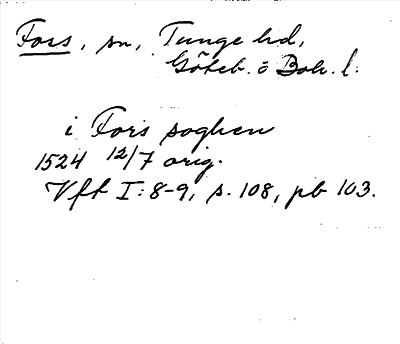 Fors, sn, Tunge hd,
Göteb. o Boh. l.
i Fors soghen
1524 12/7 orig.
Vft I:8-9, s. 108, pb 103.